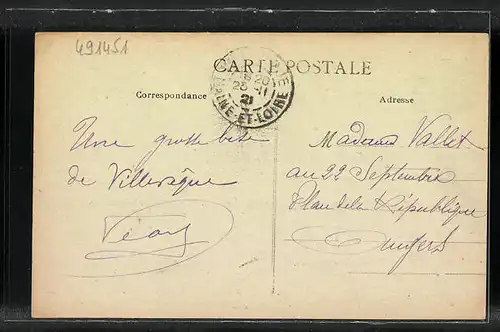 491451
CARTE POSTALE
18 20
23 - 11
21
MAINE-ET-LOIRE
Correspondance
Adresse
Une grosse bise
de Villevêque
Madame Vallet
au 22 Septembre
Place de la République
Angers